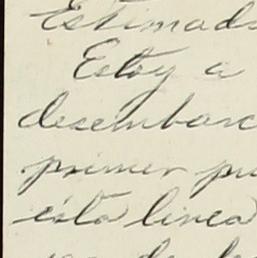 Estimado
Estoy a
desembarc
primer pu
ésta linea